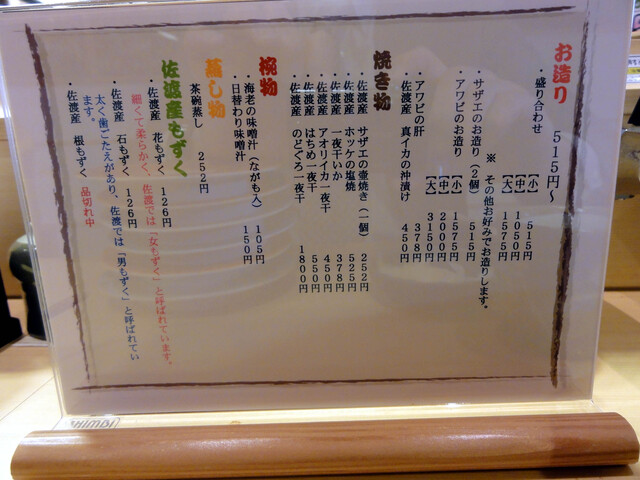 お造り 515円~
・盛り合わせ
【小】 515円
【中】 1050円
【大】 1575円
※ その他お好みでお造りします。
・サザエのお造り（2個） 515円
・アワビのお造り 【小】 1575円
【中】 2000円
【大】 3150円
・アワビの肝 378円
・佐渡産 真イカの沖漬け 450円
焼き物
・佐渡産 サザエの壺焼き（一個） 252円
・佐渡産 ホッケの塩焼 525円
・佐渡産 一夜干いか 378円
・佐渡産 アオリイカ一夜干 450円
・佐渡産 はちめ一夜干 550円
・佐渡産 のどぐろ一夜干 1800円
椀物
・海老の味噌汁（ながも入） 105円
・日替わり味噌汁 150円
蒸し物
茶碗蒸し 252円
佐渡産もずく
・佐渡産 花もずく 126円
細くて柔らかく、佐渡では「女もずく」と呼ばれています。
・佐渡産 石もずく 126円
太く歯ごたえがあり、佐渡では「男もずく」と呼ばれてい
ます。
・佐渡産 根もずく 品切れ中
SHIMBI